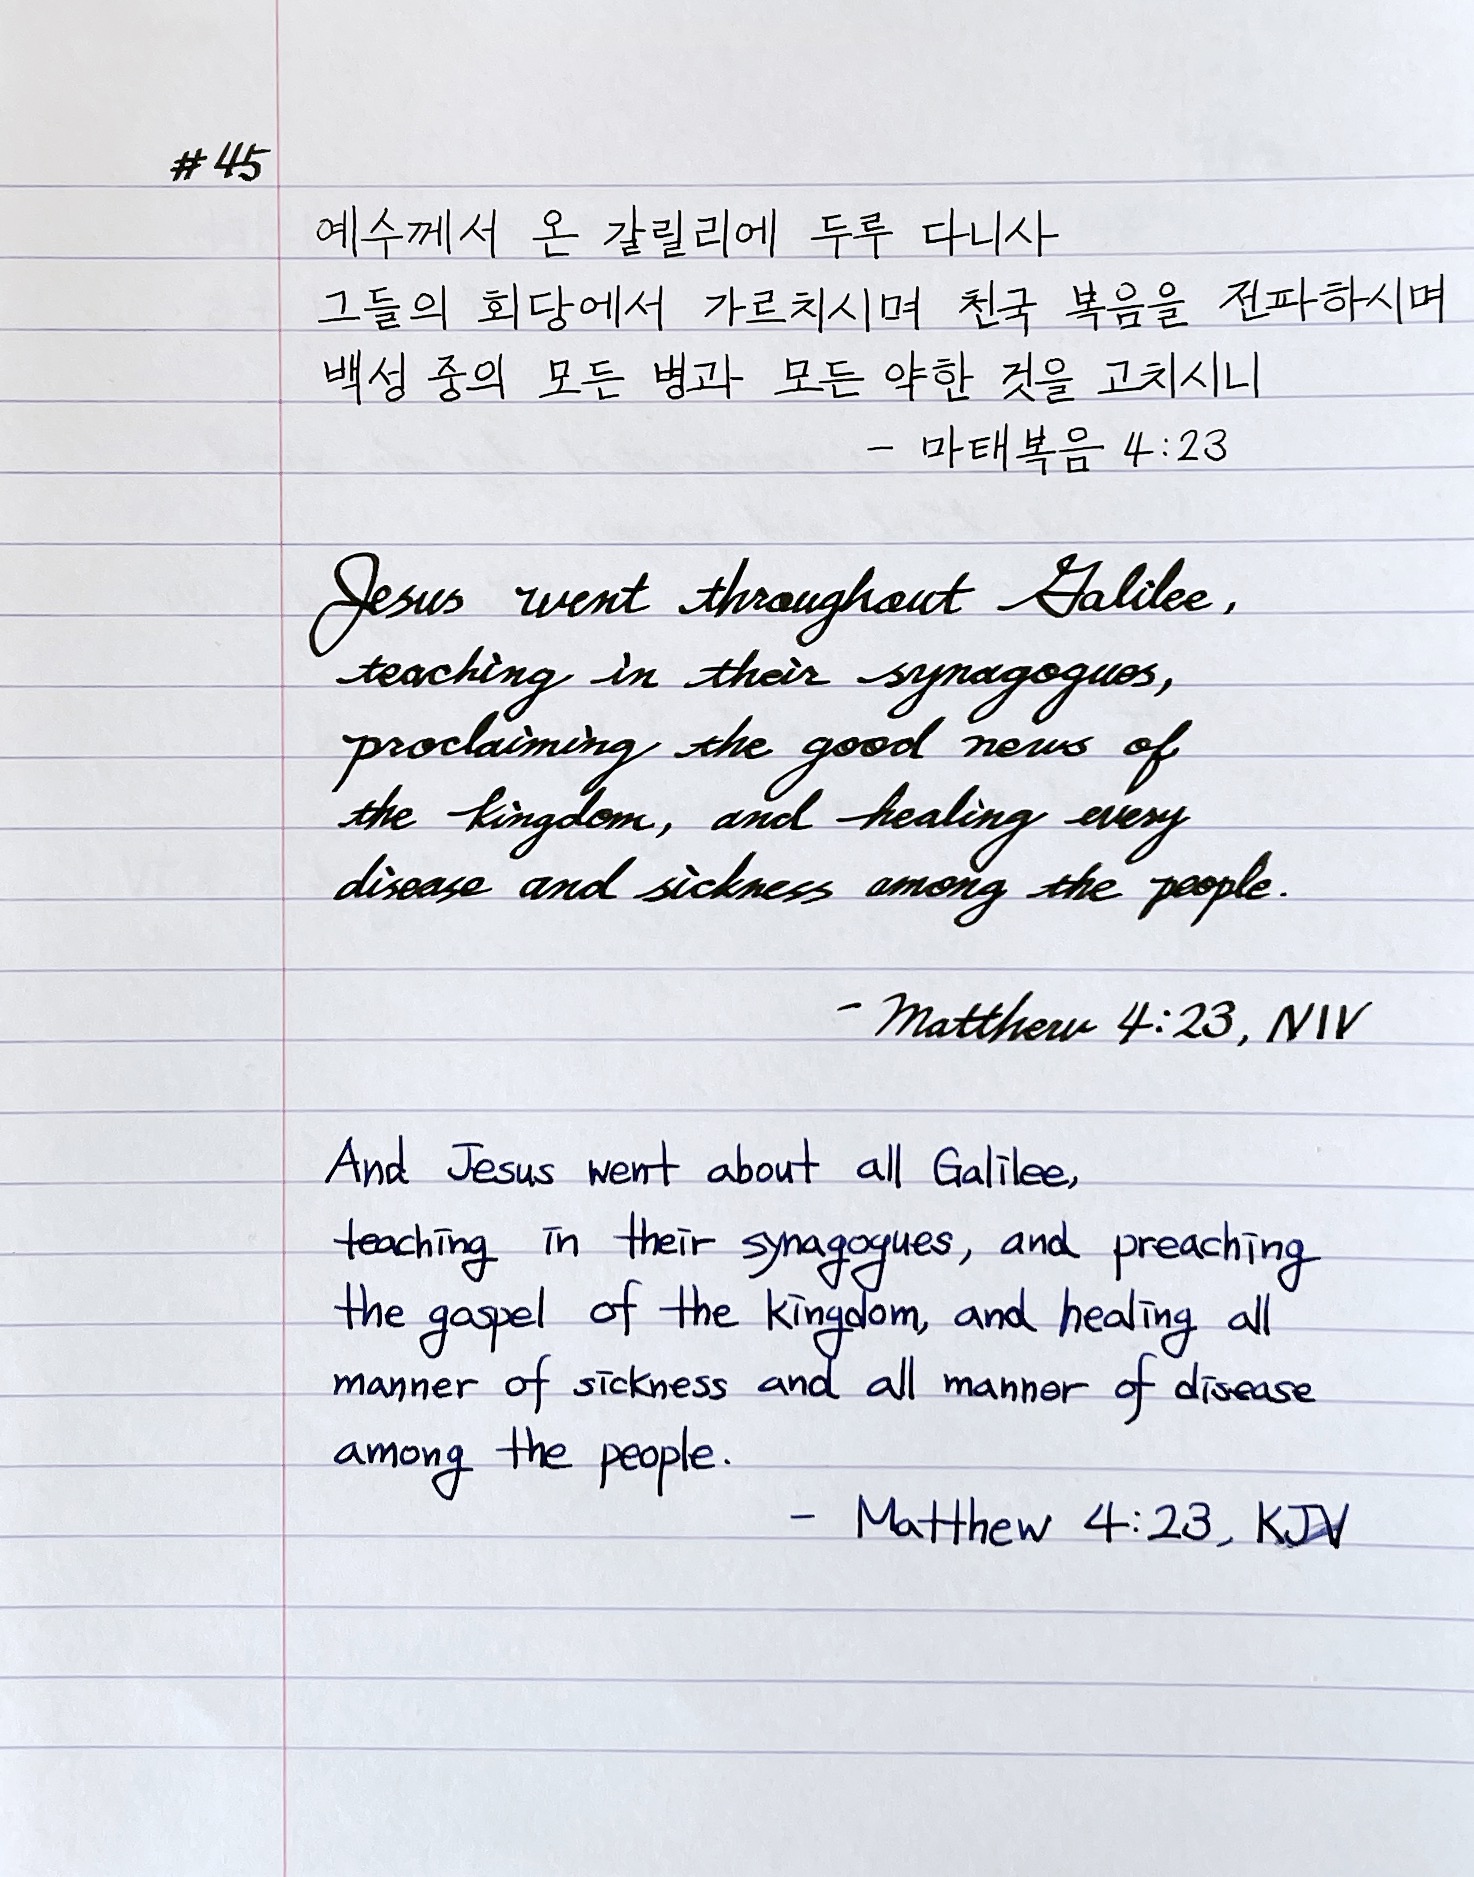 #45
예수께서 온 갈릴리에 두루 다니사
그들의 회당에서 가르치시며 천국 복음을 전파하시며
백성 중의 모든 병과 모든 약한 것을 고치시니
- 마태복음 4:23
Jesus went throughout Galilee,
teaching in their synagogues,
proclaiming the good news of
the kingdom, and healing every
disease and sickness among the people.
- Matthew 4:23, NIV
And Jesus went about all Galilee,
teaching in their synagogues, and preaching
the gospel of the kingdom, and healing all
manner of sickness and all manner of disease
among the people.
- Matthew 4:23, KJV